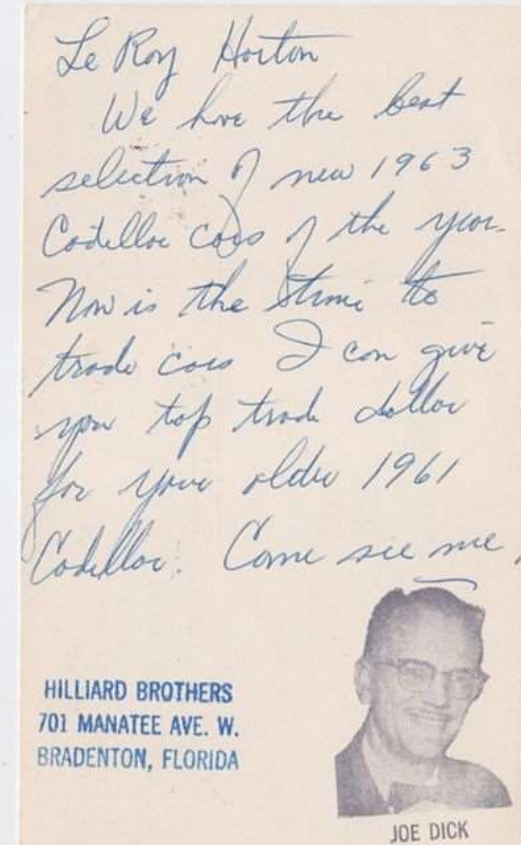 Le Roy Horton
We have the best
selection of new 1963
Cadillac cars of the year.
Now is the time to
trade cars I can give
you top trade dollar
for your older 1961
Cadillac. Come see me.
HILLIARD BROTHERS
701 MANATEE AVE. W.
BRADENTON, FLORIDA
JOE DICK